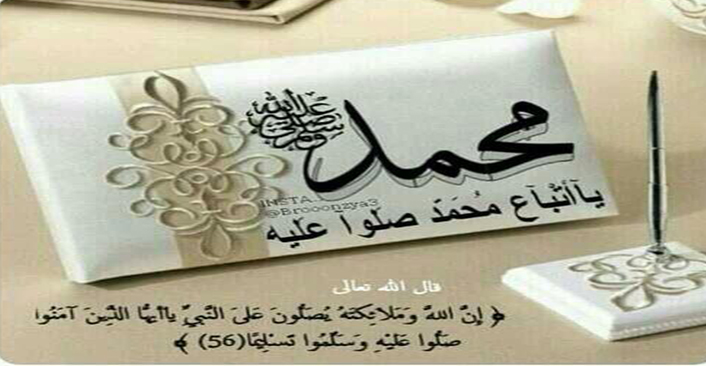 محمد
صلى الله عليه وسلم
INSTA
@Brooonzya3
ياأتبآع محمد صلوا عليه
قال الله تعالى
﴿ إِنَّ اللَّهَ وَمَلَائِكَتَهُ يُصَلُّونَ عَلَى النَّبِيِّ يَاأَيُّهَا الَّذِينَ آمَنُوا
صَلُّوا عَلَيْهِ وَسَلِّمُوا تَسْلِيمًا(56) ﴾